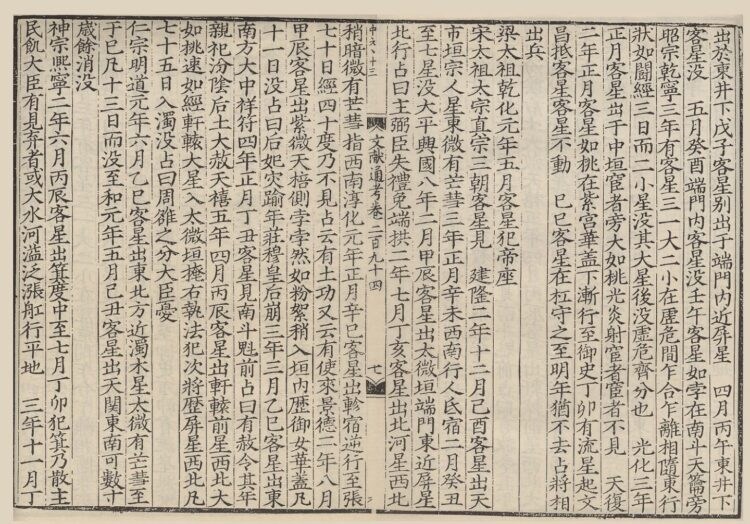 出於東井下戊子客星别出于端門内近屏星　四月丙午東井下
客星没　五月癸酉端門内客星没壬午客星如孛在南斗天籥旁
昭宗乾寧三年有客星三一大二小在虚危間乍合乍離相隨東行
狀如鬬經三日而二小星没其大星後没虚危齊分也　光化三年
正月客星出于中垣宦者旁大如桃光炎射宦者宦者不見　天復
二年正月客星如桃在紫宫華蓋下漸行至御史丁卯有流星起文
昌抵客星客星不動　己巳客星在杠守之至明年猶不去占將相
出兵
梁太祖乾化元年五月客星犯帝座
宋太祖太宗真宗三朝客星見　建隆二年十二月己酉客星出天
市垣宗人星東微有芒彗三年正月辛未西南行入氐宿二月癸丑
至七星没太平興國八年二月甲辰客星出太微垣端門東近屏星
北行占曰主弼臣失禮免端拱二年七月丁亥客星出北河星西北
稍暗微有芒彗指西南淳化元年正月辛巳客星出軫宿逆行至張
七十日經四十度乃不見占云有土功又云有使來景德二年八月
甲辰客星出紫微天棓側孛孛然如粉絮稍入垣内歷御女華蓋凡
十一日没占曰后妃灾踰年莊穆皇后崩三年三月乙巳客星出東
南方大中祥符四年正月丁丑客星見南斗魁前占曰有赦令其年
親祀汾陰后土大赦天禧五年四月丙辰客星出軒轅前星西北大
如桃速如經軒轅大星入太微垣掩右執法犯次將歷屏星西北凡
七十五日入濁没占曰周雒之分大臣憂
仁宗明道元年六月乙巳客星出東北方近濁木星太微有芒彗至
于丁巳凡十三日而没至和元年五月己丑客星出天關東南可數寸
歲餘消没
神宗熙寧二年六月丙辰客星出箕度中至七月丁卯犯箕乃散主
民飢大臣有見弃者或大水河溢泛漲舡行平地　三年十一月丁
文献通考卷二百九十四
七